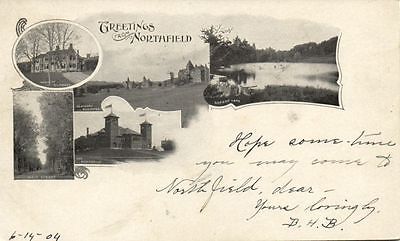 GREETINGS
FROM
NORTHFIELD
MAIN STREET
Hope some-time
you may come to
Northfield, dear—
Yours lovingly
D.H.B.
6-14-04